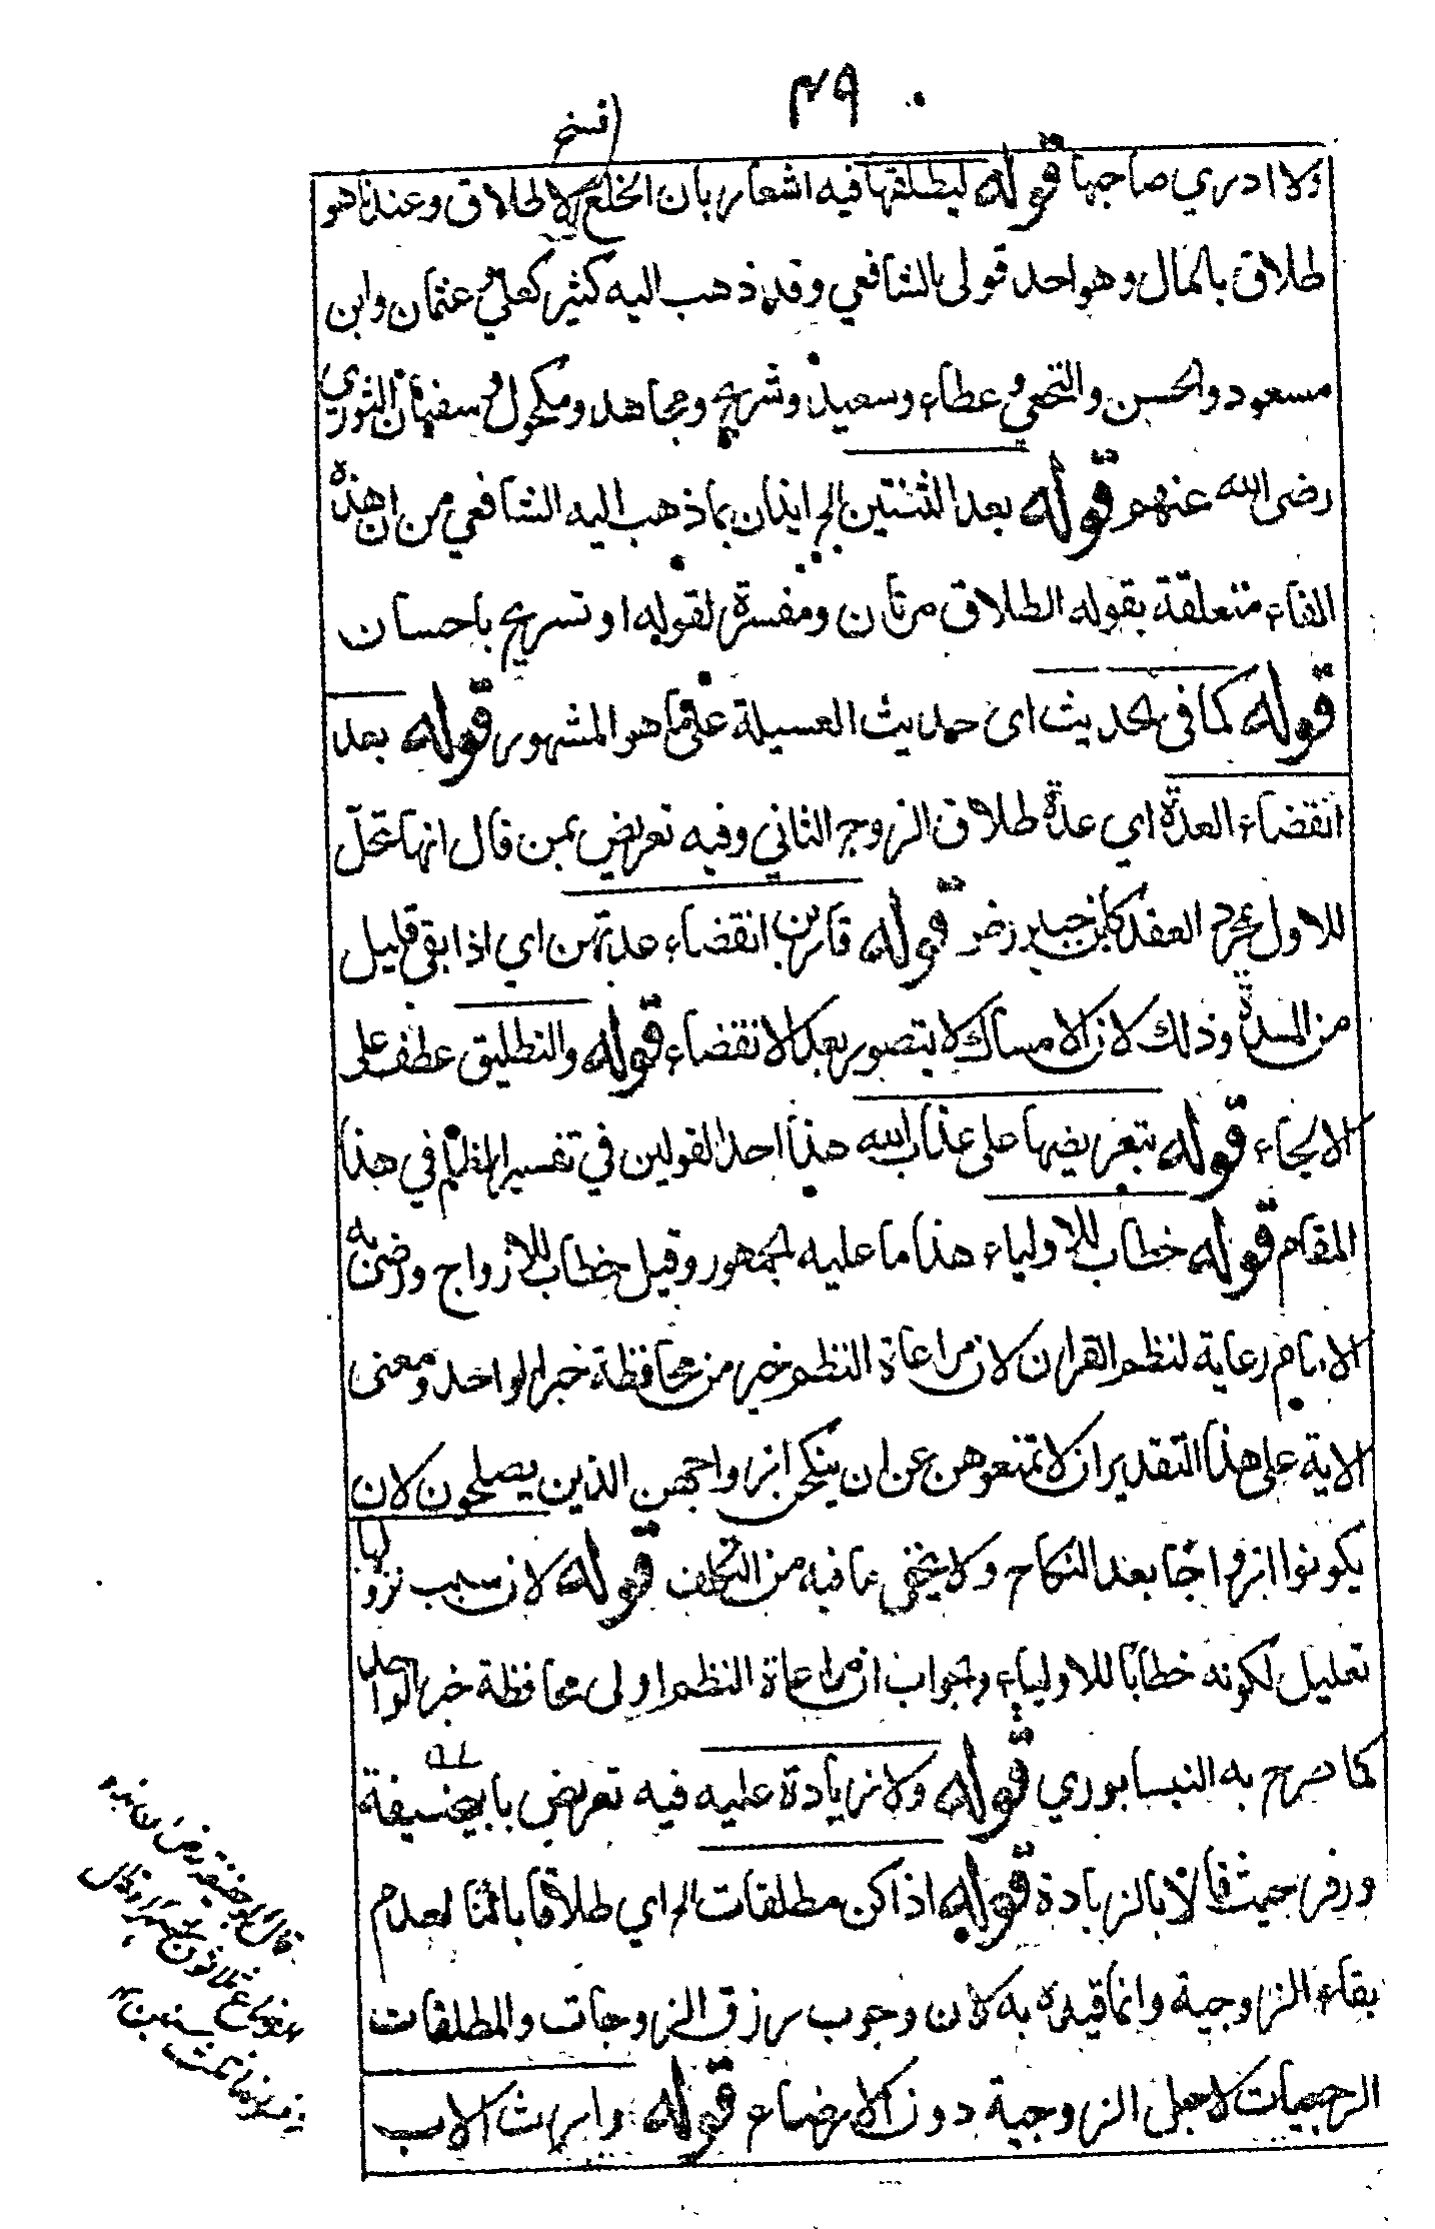 ٤٩
فسخ
ولا ادري صاحبها قوله ليطلقها فيه اشعار بان الخلع لا طلاق وعندنا هو
طلاق بالمال وهو احد قولى الشافعي وقد ذهب اليه كثير كعلي وعثمان وابن
مسعود والحسن والنخعي وعطاء وسعيد وشريح ومجاهد ومكحول وسفيان الثوري
رضى الله عنهم قوله بعد الثنتين الخ ايذان بما ذهب اليه الشافعي من ان هذه
الفاء متعلقة بقوله الطلاق مرتان ومفسرة لقوله او تسريح باحسان
قوله كما فى الحديث اى حديث العسيلة على ما هو المشهور قوله بعد
انقضاء العدة اي عدة طلاق الزوج الثاني وفيه تعريض بمن قال انها تحل
للاول بمجرد العقد كابن جبير رضه قوله قاربن انقضاء عدتهن اي اذا بقى قليل
من المدة وذلك لان الامساك لا يتصور بعد الانقضاء قوله والتطليق عطف على
الالجاء قوله بتعريضها على عذاب الله هذا احد القولين في تفسير الظلم في هذا
المقام قوله خطاب للاولياء هذا ما عليه الجمهور وقيل خطاب للازواج ورضى به
الامام رعاية لنظم القران لان مراعاة النظم خير من محافظة خبر الواحد ومعنى
الاية على هذا التقدير ان لا تمنعوهن عن ان ينكحن ازواجهن الذين يصلحون لان
يكونوا ازواجا بعد النكاح ولا يخفى ما فيه من التكلف قوله لان سبب نزولها
تعليل لكونه خطابا للاولياء وجواب ان مراعاة النظم اولى محافظة خبر الواحد
كما صرح به النيسابوري قوله ولا زيادة عليه فيه تعريض بابي حنيفة
وزفر حيث قالا بالزيادة قوله اذا كن مطلقات الخ اي طلاقا بائنا لعدم
بقاء الزوجية وانما قيده به لان وجوب رزق الزوجات والمطلقات
الرجعيات لاجل الزوجية دون الارضاع قوله وارث الاب
قال ابو حنيفة
ثلاثون شهرا وقال